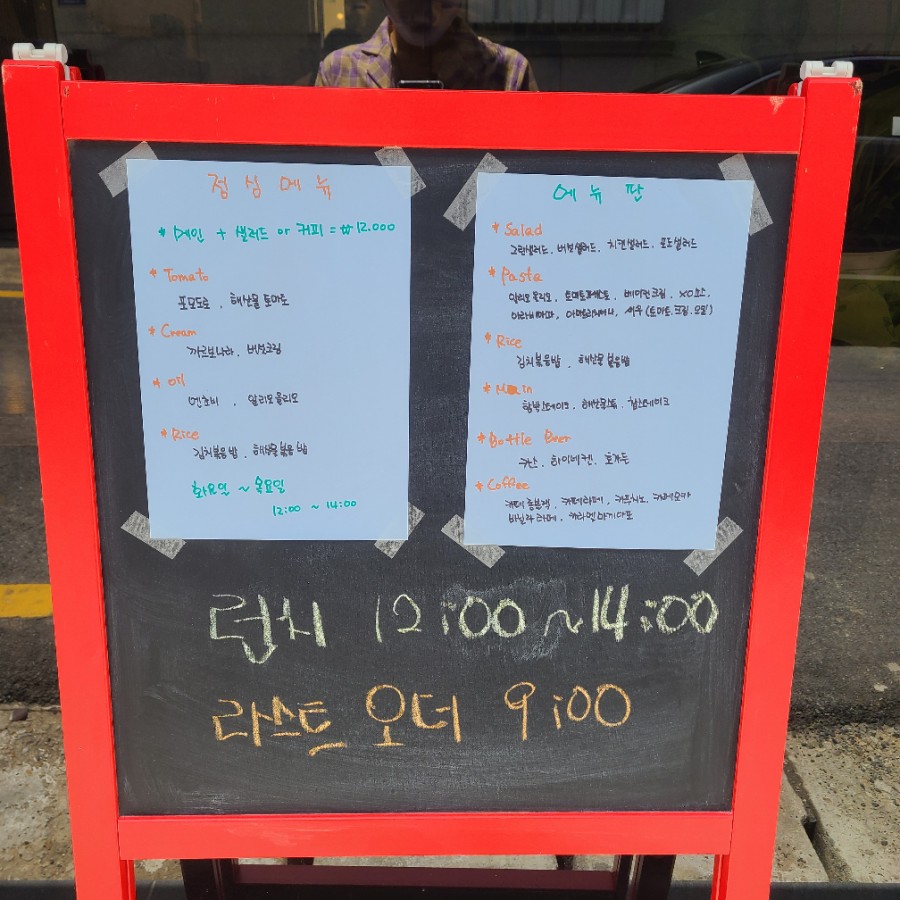 점심메뉴
* 메인 + 샐러드 or 커피 = ₩12.000
* Tomato
포모도로 , 해산물 토마토
* Cream
까르보나라 , 버섯크림
* oil
엔초비 , 알리오올리오
* Rice
김치볶음밥 , 해산물볶음밥
화요일 ~ 목요일
12:00 ~ 14:00
메뉴판
* Salad
그린샐러드, 버섯샐러드, 치킨샐러드,
* Pasta
알리오올리오, 베이컨크림, XO소스,
새우 (토마토.크림.오일)
* Rice
김치볶음밥 , 해산물볶음밥
* Main
함박스테이크 , 찹스테이크
* Bottle Beer
하이네켄, 호가든
* Coffee
카페라떼 , 카푸치노 , 카페모카
바닐라라떼 , 카라멜마끼아또
런치 12:00 ~ 14:00
라스트 오더 9:00